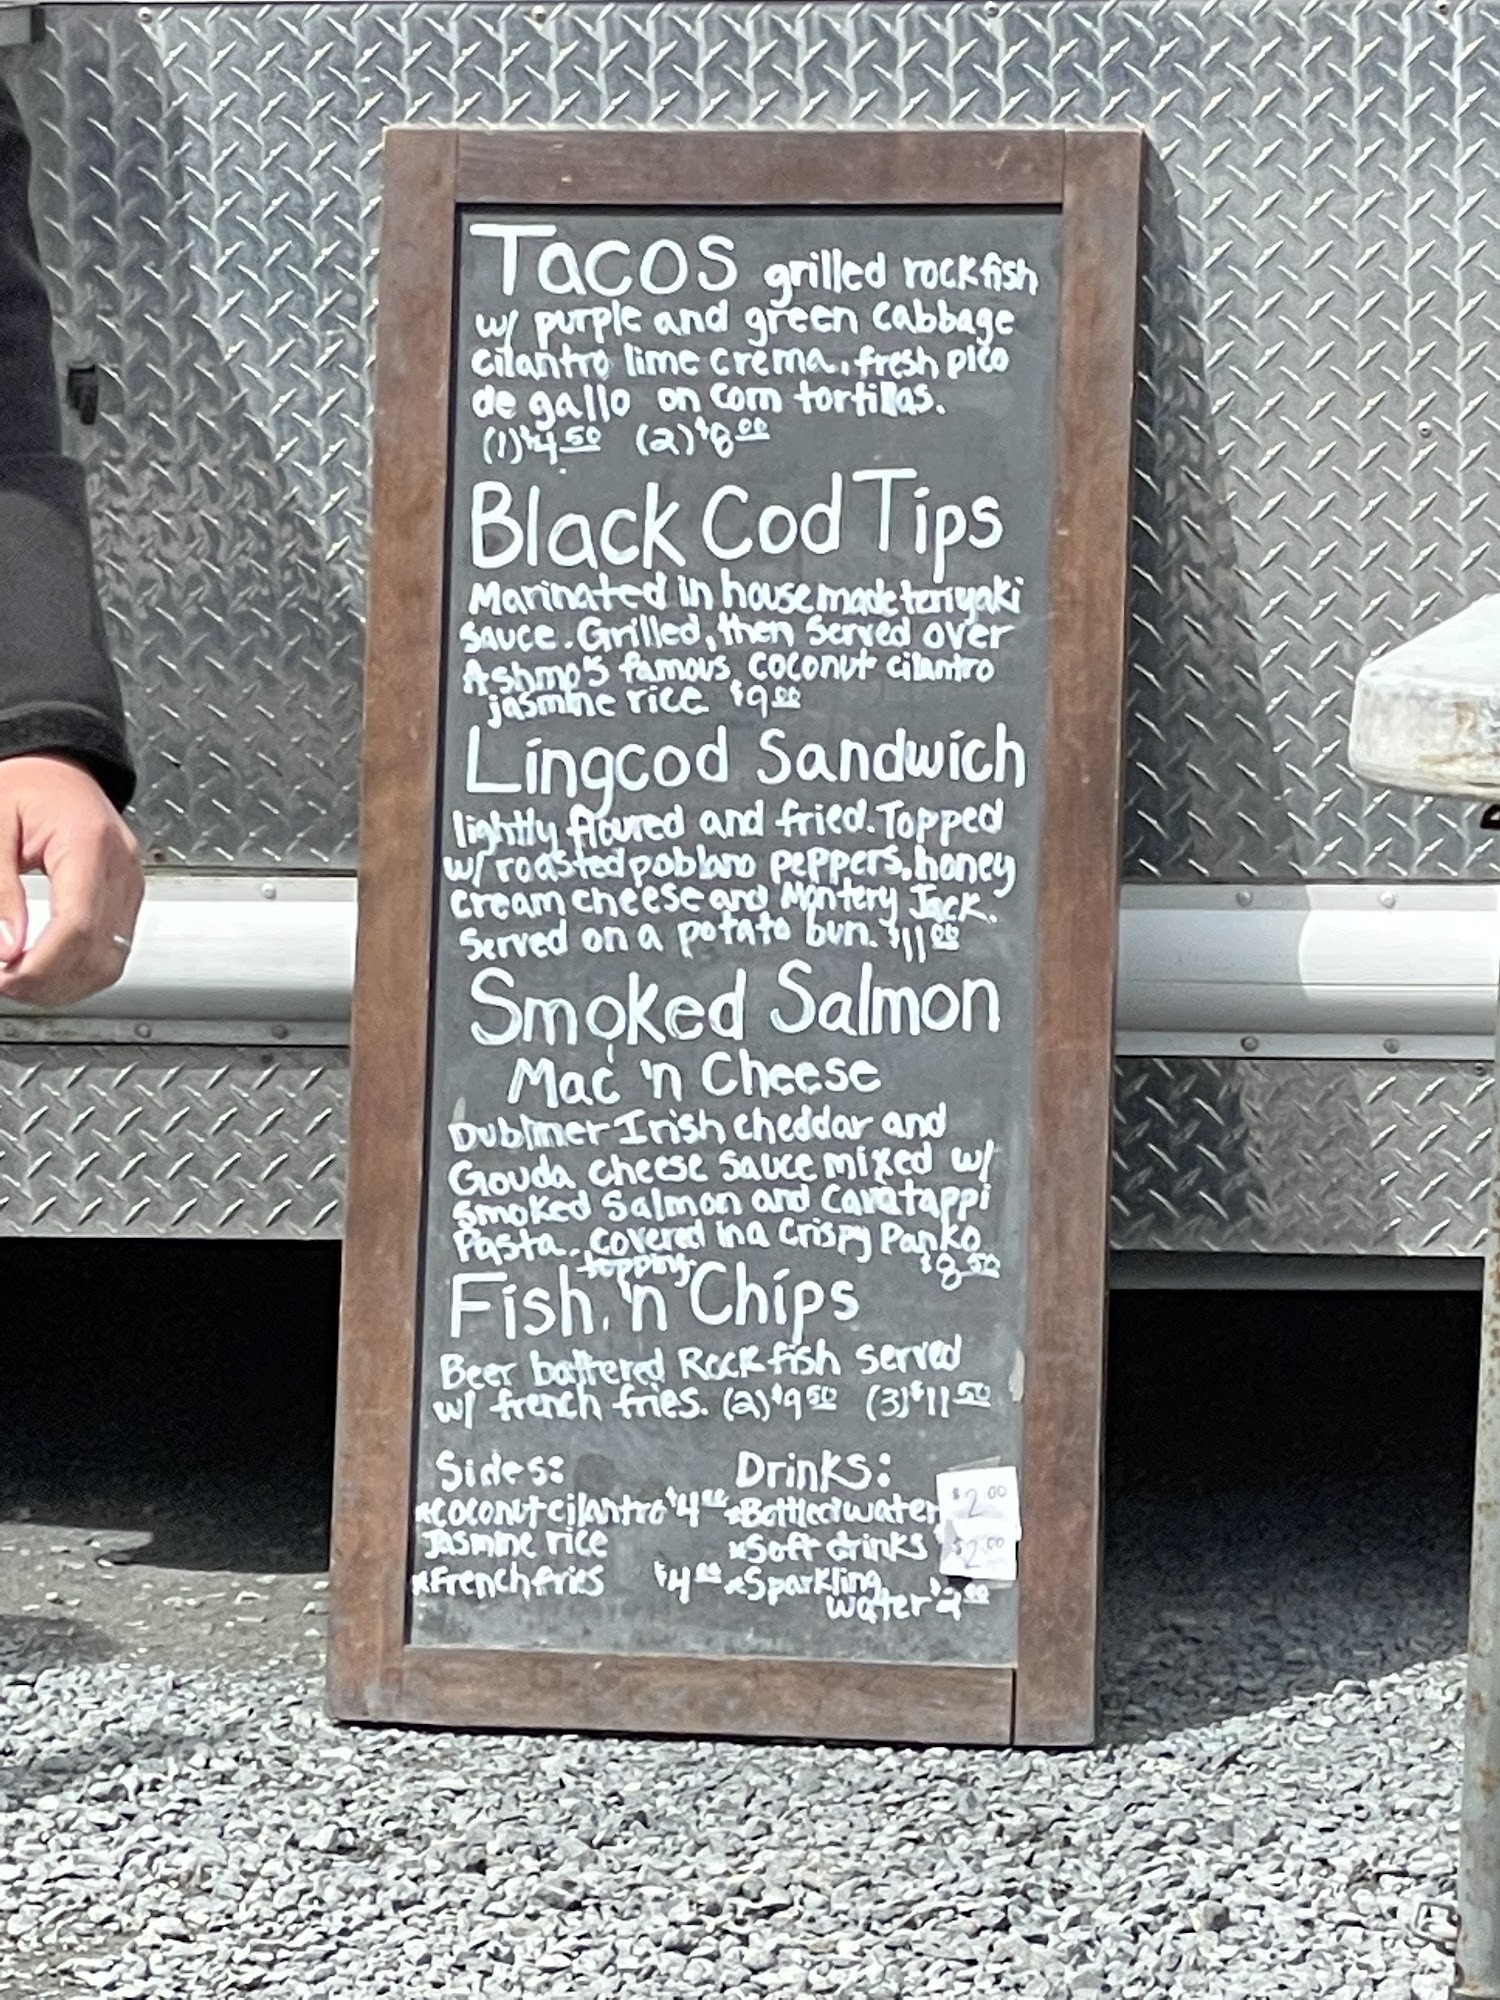 Tacos grilled rockfish
w/ purple and green cabbage
cilantro lime crema, fresh pico
de gallo on corn tortillas.
(1) $4.50 (2) $8.00
Black Cod Tips
Marinated in house made teriyaki
sauce. Grilled, then served over
Ashmo's famous coconut cilantro
jasmine rice $9.00
Lingcod Sandwich
lightly floured and fried. Topped
w/ roasted poblano peppers, honey
cream cheese and Montery Jack.
Served on a potato bun. $11.00
Smoked Salmon
Mac 'n Cheese
Dubliner Irish cheddar and
Gouda cheese sauce mixed w/
smoked salmon and Cavatappi
Pasta. covered in a crispy Panko
topping $8.50
Fish 'n Chips
Beer battered Rockfish served
w/ french fries. (2) $9.50 (3) $11.50
Sides: Drinks:
*coconut cilantro $4.00 *Bottled water $2.00
Jasmine rice *Soft drinks $2.00
*French fries $4.00 *Sparkling
water $2.00